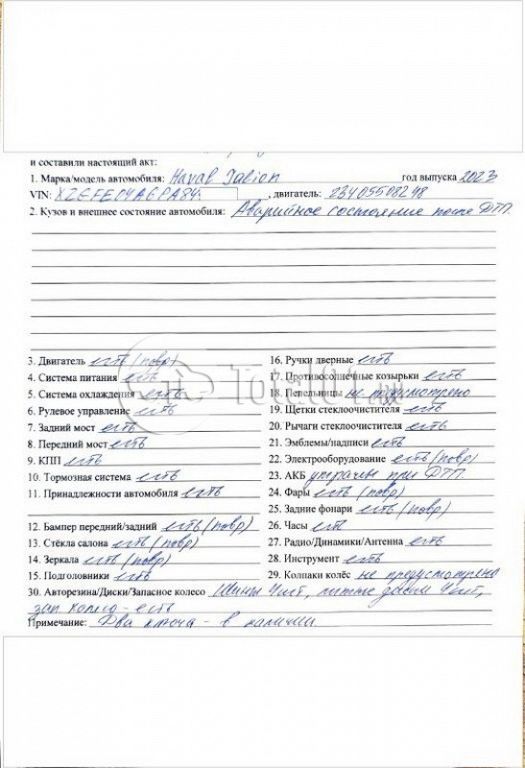 и составили настоящий акт:
1. Марка/модель автомобиля: Haval Jolion год выпуска 2023
VIN: XZEFE04A6PA84, двигатель: 23405508248
2. Кузов и внешнее состояние автомобиля: Аварийное состояние после ДТП
3. Двигатель есть (повр)
4. Система питания есть
5. Система охлаждения есть
6. Рулевое управление есть
7. Задний мост есть
8. Передний мост есть
9. КПП есть
10. Тормозная система есть
11. Принадлежности автомобиля есть
12. Бампер передний/задний есть (повр)
13. Стёкла салона есть (повр)
14. Зеркала есть (повр)
15. Подголовники есть
16. Ручки дверные есть
17. Противосолнечные козырьки есть
18. Пепельницы не предусмотрено
19. Щетки стеклоочистителя есть
20. Рычаги стеклоочистителя есть
21. Эмблемы/надписи есть
22. Электрооборудование есть (повр)
23. АКБ утрачены при ДТП
24. Фары есть (повр)
25. Задние фонари есть (повр)
26. Часы есть
27. Радио/Динамики/Антенна есть
28. Инструмент есть
29. Колпаки колёс не предусмотрено
30. Авторезина/Диски/Запасное колесо Шины 4шт, литые диски 4шт,
зап колесо - есть
Примечание: Два ключа - в наличии
Total01.ru